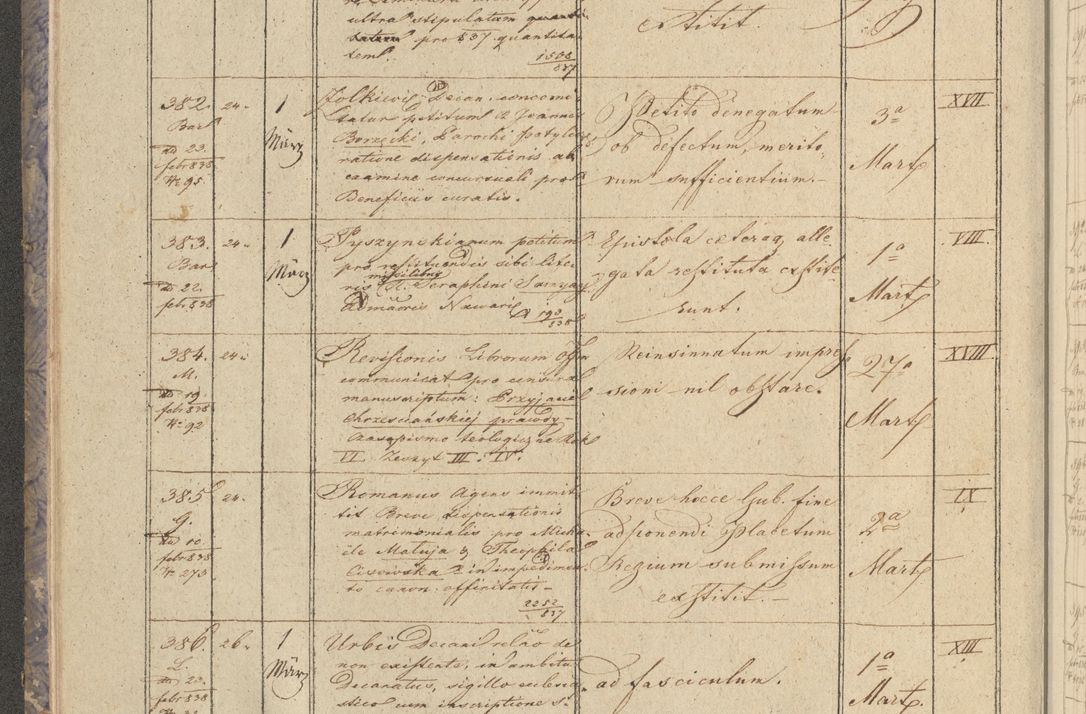 ultra stipulatum
pro 837 quantita
tem.
1508
837
extitit.
382. 24. 1 März
Bar
dd 23.
febr 838
Nr 95.
Zolkiewi. Decan. concomi
tatur petitum Joannis
Borzęcki, Parochi
ratione dispensationis ab
examine concursuali pro
Beneficiis curatis.
Petito denegatum
ob defectum, merito
rum sufficientium.
3a
Mart
XVII
383. 24. 1 März
Bar
dd 22.
febr. 838
pro restituendis sibi lite
missilibus
ris Seraphini
Nawarie
198
838
Epistola caeteraq alle
gata restituta extite
runt.
1a
Mart
VIII.
384. 24.
M.
dd 19.
febr 838
Nr 92
Revisionis Librorum Off
communicat pro censura
manuscriptum: Przyjaciel
chrześciańskiej prawdy
Czasopismo teologiczne Rok
VI. Zeszyt III. IV.
Reinsinnatum impres
sioni nil obstare.
27a
Mart
XVIII
385. 24.
G.
dd 10.
febr 838
Nr 273
Romanus Agens immit
tit Breve dispensationis
matrimonialis pro Micha
ele Matuja & Theophila
Cisowska in impedimen
to canon. affinitatis
2252
837
Breve hocce Gub. fine
adponendi Placetum
Regium submissum
extitit.
2a
Mart
IX
386. 26. 1 März
L.
dd 23.
febr 838
Urbis Decani relatio de
non existente, in ambitu
Decanatus, sigillo ecclesia
stico cum inscriptione S.
ad fasciculum.
1a
Mart.
XIII